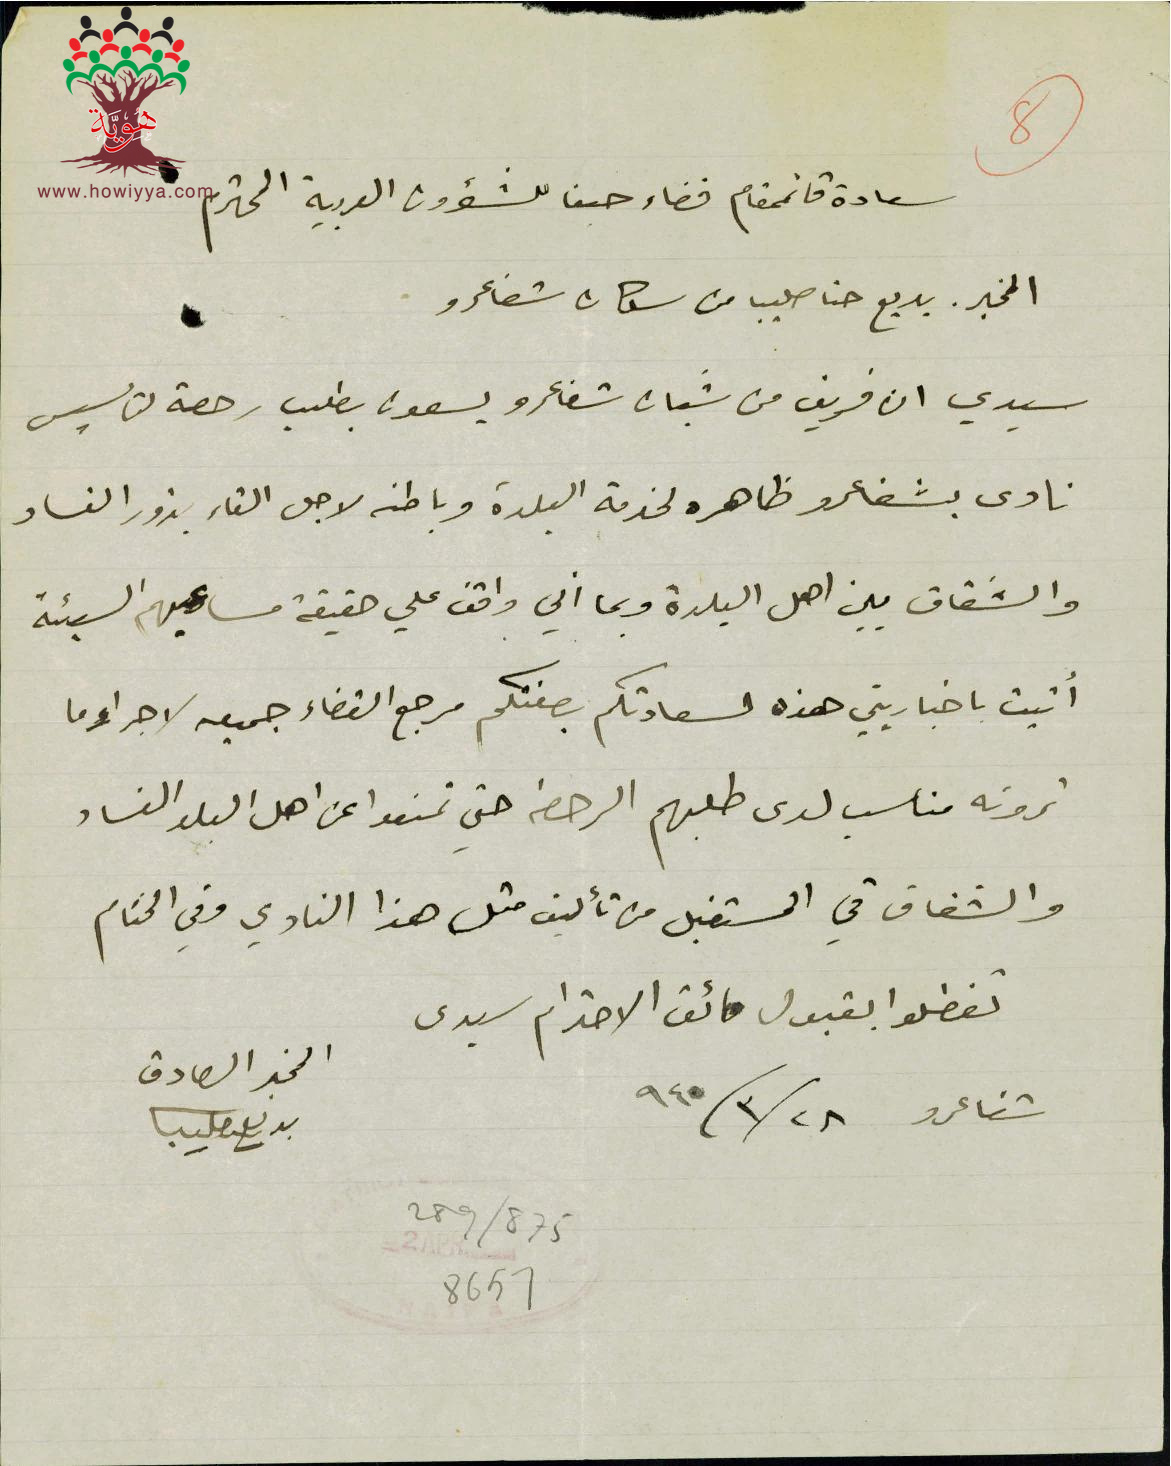 هوية
www.howiyya.com
8
سعادة قائمقام قضاء حيفا للشؤون العربية المحترم
المخبر . بديع حنا صليبا من سكان شفاعمرو
سيدي ان فريق من شبان شفاعمرو يسعون بطلب رخصة لتأسيس
نادى بشفاعمرو ظاهره لخدمة البلدة وباطنه لاجل القاء بذور الفساد
والشقاق بين اهل البلدة وبما اني واقف علي حقيقة مساعيهم السيئة
أتيت باخباريتي هذه لسعادتكم بصفتكم مرجع القضاء جميعه لاجراء ما
ترونه مناسب لدى طلبهم الرخصة حتي تمنعوا عن اهل البلد الفساد
والشقاق في المستقبل من تأليف مثل هذا النادي وفي الختام
تفضلوا بقبول فائق الاحترام سيدى
المخبر الصادق
بديع صليبا
شفاعمرو ٢٨/٣/٩٤٠
289/875
8657